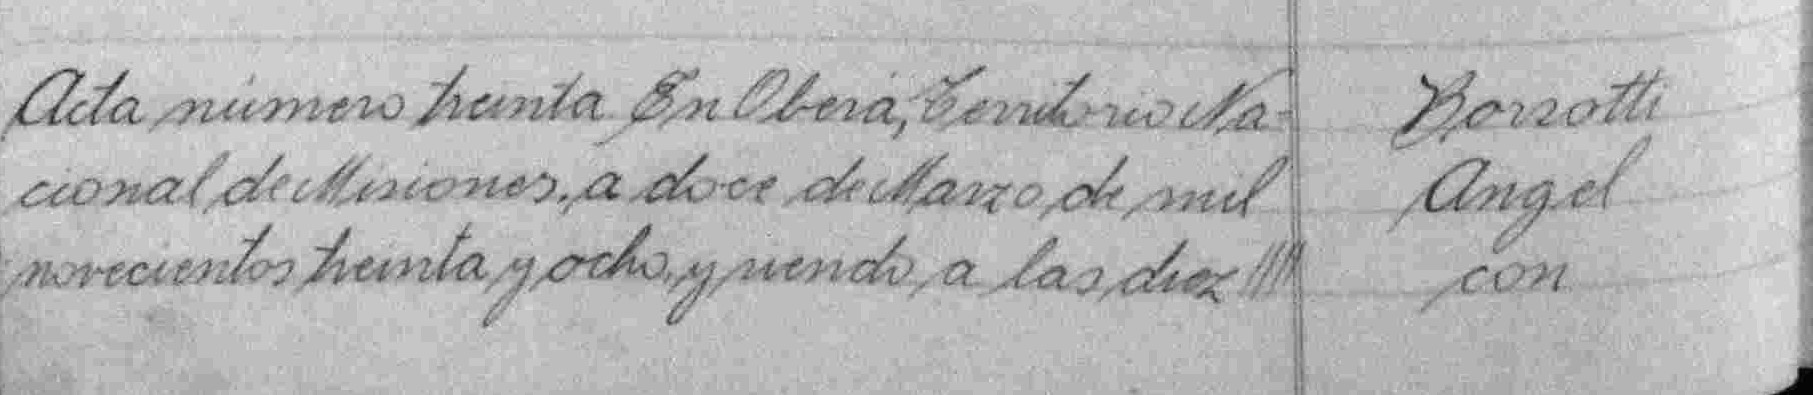 Acta número treinta En Oberá, Territorio Na-
cional de Misiones, a doce de Marzo de mil
novecientos treinta y ocho, y siendo a las diez ////
Borzotti
Angel
con